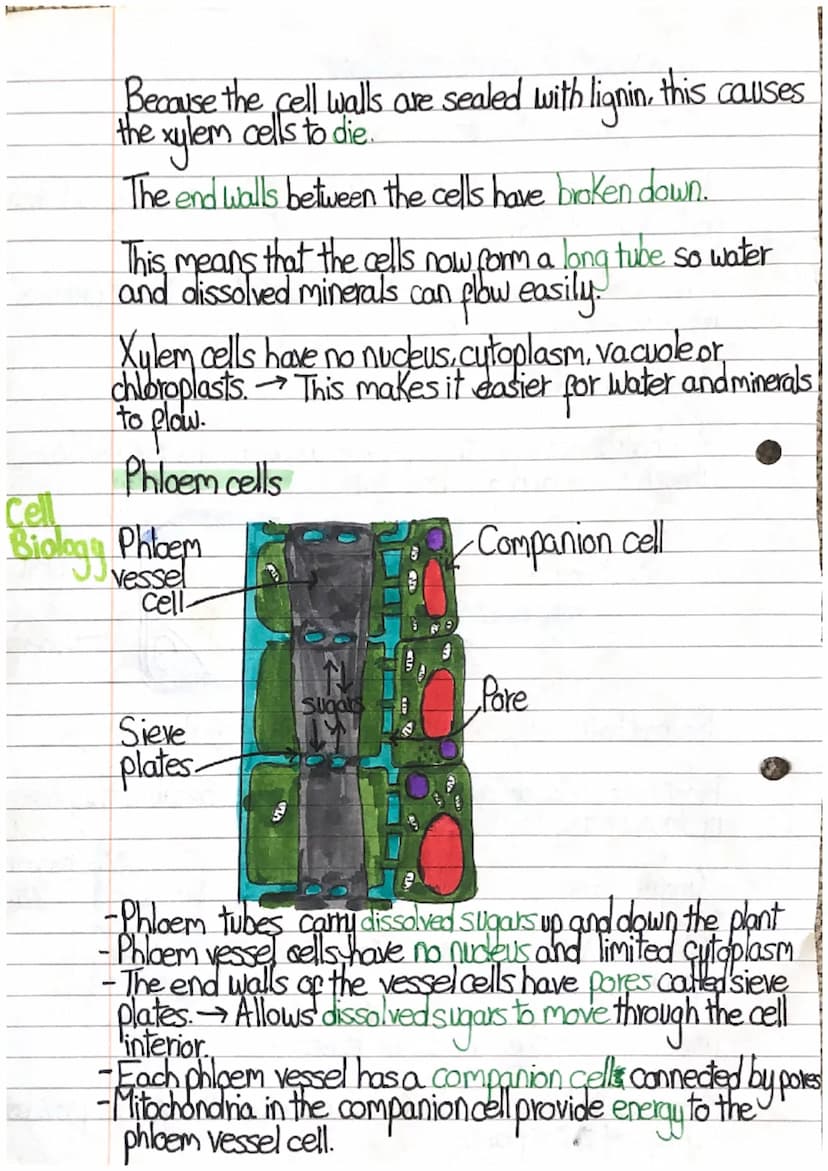 Because the cell walls are sealed with lignin, this causes
the xylem cells to die.
The end walls between the cells have broken down.
This means that the cells now form a long tube so water
and dissolved minerals can flow easily.
Xylem cells have no nucleus, cytoplasm, vacuole or
chloroplasts. → This makes it easier for water and minerals
to flow.
Phloem cells
Cell
Biology
Phloem
vessel
cell
Companion cell
sugars
Pore
Sieve
plates
- Phloem tubes carry dissolved sugars up and down the plant
- Phloem vessel cells have no nucleus and limited cytoplasm
- The end walls of the vessel cells have pores called sieve
plates. → Allows dissolved sugars to move through the cell
interior.
- Each phloem vessel has a companion cell connected by pores
- Mitochondria in the companion cell provide energy to the
phloem vessel cell.